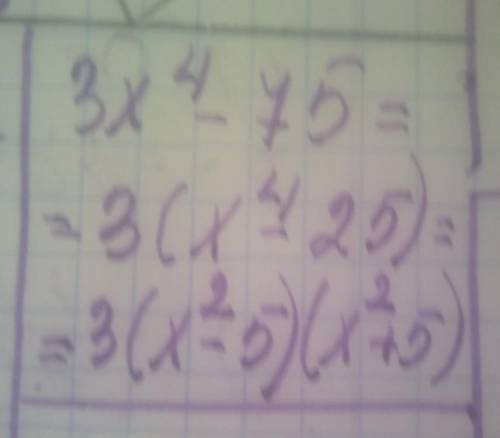 3x⁴ - 75 =
= 3(x⁴ - 25) =
= 3(x² - 5)(x² + 5)